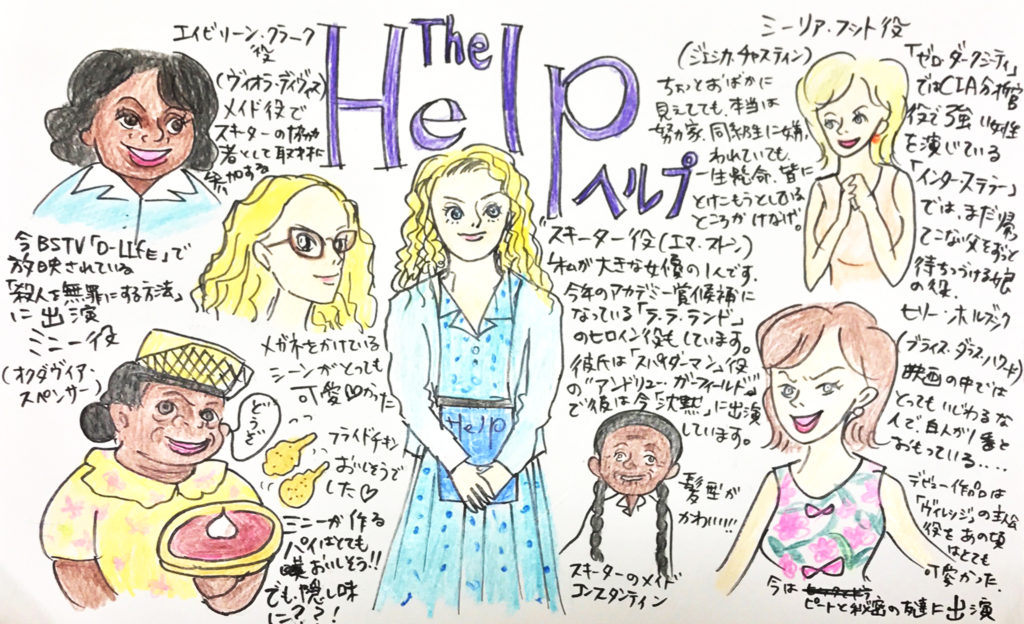 The
Help
ヘルプ
エイビリーン・クラーク
役
(ヴィオラ・デイヴィス)
メイド役で
スキーターの協力
者として取材に
参加する
今BSTV「D-LIFE」で
放映されている
「殺人を無罪にする方法」
に出演
ミニー役
(オクダヴィア・
スペンサー)
どうぞ
フライドチキン
おいしそうで
した♡
ミニーが作る
パイはとても
おいしそう!!
でも、隠し味
に??!
メガネをかけている
シーンがとっても
可愛かった
Help
スキーター役(エマ・ストーン)
私が大きな女優の1人です。
今年のアカデミー賞候補に
なっている「ラ・ラ・ランド」
のヒロイン役もしています。
彼氏は「スパイダーマン」役
の"アンドリュー・ガーフィールド"
で彼は今「沈黙」に出演
しています。
髪型が
かわいい!!!
スキーターのメイド
コンスタンティン
ミーリア・フット役
(ジェシカ・チャスティン)
ちょっとおばかに
見えてても、本当は
努力家、同級生に嫌
われていても、
一生懸命、皆に
とけこもうとしている
ところがけなげ。
「ゼロ・ダーク・サーティ」
ではCIA分析官
役で強い女性
を演じている
「インターステラー」
では、まだ帰っ
てこない父をずっと
待ちつづける娘
の役。
ヒリー・ホルブルック
(ブライス・ダラス・ハワード)
映画の中では
とってもいじわるな
人で、白人が1番と
おもっている.....
デビュー作品は
「ヴィレッジ」の主人公
役をあの頃
はとても
可愛かった
今は
ピートと秘密の友達に出演